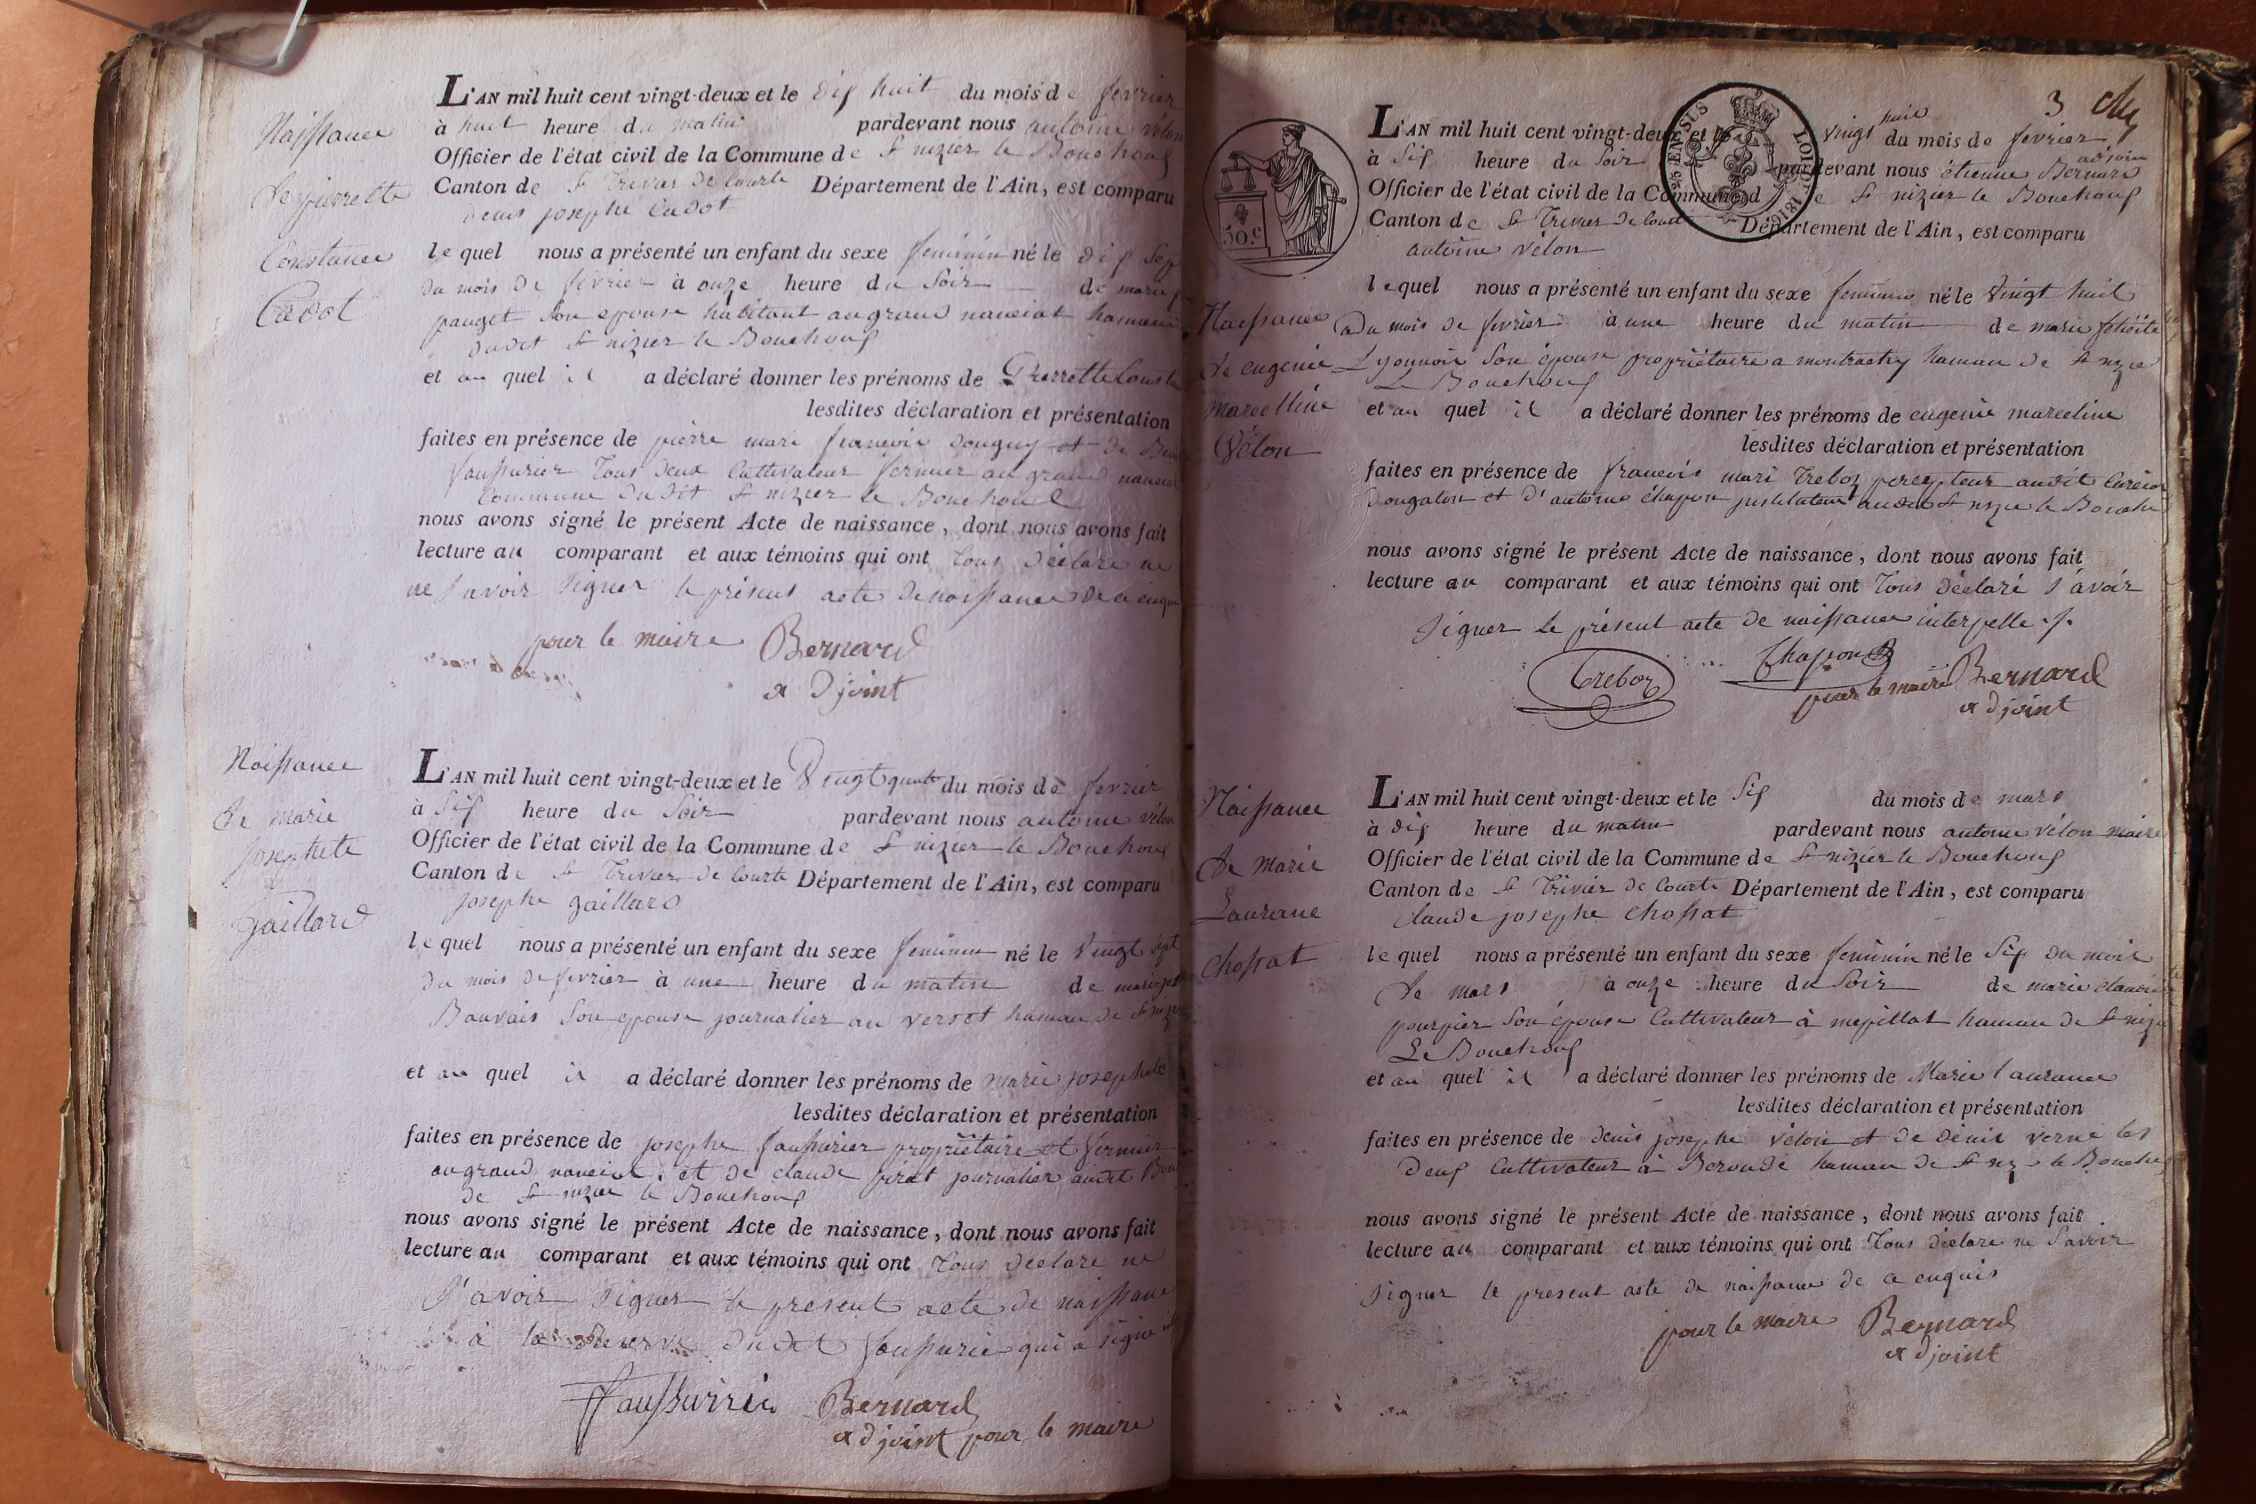 Naissance
de pierrette
Constance
Cadot
L'AN mil huit cent vingt-deux et le dix huit du mois de fevrier
à huit heure du matin pardevant nous antoine vélon
Officier de l'état civil de la Commune de St nizier le Bouchoux
Canton de St Trivier de Courte Département de l'Ain, est comparu
denis josephe Cadot
lequel nous a présenté un enfant du sexe feminin né le dix sep
du mois de fevrier à onze heure du soir de marie
pauget son epouse habitant au grand nanciat hameau
dudit St nizier le Bouchoux
et au quel il a déclaré donner les prénoms de Pierrette Const
lesdites déclaration et présentation
faites en présence de pierre mari françois douguy et de
faussurier tous deux Cultivateur fermier au grand
Commune dudit St nizier le Bouchoux
nous avons signé le présent Acte de naissance, dont nous avons fait
lecture au comparant et aux témoins qui ont tous déclare ne
ne savoir signer le présent acte de naissance de ce enquis
pour le maire Bernard
adjoint
Naissance
de marie
josephete
gaillard
L'AN mil huit cent vingt-deux et le Vingt du mois de fevrier
à six heure du soir pardevant nous antoine vélon
Officier de l'état civil de la Commune de St nizier le Bouchoux
Canton de St Trivier de Courte Département de l'Ain, est comparu
josephe gaillard
lequel nous a présenté un enfant du sexe feminin né le Vingt
du mois de fevrier à une heure du matin de marie
Bauvais son epouse journalier au versot hameau de St
et au quel il a déclaré donner les prénoms de marie josephete
lesdites déclaration et présentation
faites en présence de josephe faussurier propriétaire et fermier
au grand nanciat et de claude journalier audit
de St nizier le Bouchoux
nous avons signé le présent Acte de naissance, dont nous avons fait
lecture au comparant et aux témoins qui ont tous déclare ne
savoir signer le present acte de naissance
à la dudit faussurier qui a signé
Faussurier Bernard
adjoint pour le maire
3
25 EN SUS
LOI DE 1816
50.c
Naissance
de eugenie
marcelline
Vélon
L'AN mil huit cent vingt-deux et le vingt huit du mois de fevrier
à six heure du soir pardevant nous étienne Bernard adjoint
Officier de l'état civil de la Commune de St nizier le Bouchoux
Canton de St Trivier de Court Département de l'Ain, est comparu
antoine vélon
lequel nous a présenté un enfant du sexe feminin né le Vingt huit
du mois de fevrier à une heure du matin de marie felicite
Lyonnois son épouse propriétaire a montrachy hameau de St nizie
Le Bouchoux
et au quel il a déclaré donner les prénoms de eugenie marceline
lesdites déclaration et présentation
faites en présence de francois mari treboz percepteur audit
et d'antoine chapon instituteur audit St nizie le Bouchou
nous avons signé le présent Acte de naissance, dont nous avons fait
lecture au comparant et aux témoins qui ont tous déclaré savoir
signer le présent acte de naissance interpelle
Treboz Chapon pour le maire Bernard
adjoint
Naissance
de marie
Laurance
Chossat
L'AN mil huit cent vingt-deux et le six du mois de mars
à dix heure du matin pardevant nous antoine vélon maire
Officier de l'état civil de la Commune de St nizier le Bouchoux
Canton de St Trivier de Courte Département de l'Ain, est comparu
claude josephe chossat
lequel nous a présenté un enfant du sexe feminin né le six du mois
de mars à onze heure du soir de marie claudine
pourpier son épouse Cultivateur à mepillat hameau de St nizie
Le Bouchoux
et au quel il a déclaré donner les prénoms de Marie laurance
lesdites déclaration et présentation
faites en présence de denis josephe vélon et de denis verne les
deux Cultivateur à hameau de St nizie le Bouchou
nous avons signé le présent Acte de naissance, dont nous avons fait
lecture au comparant et aux témoins qui ont tous déclare ne savoir
signer le present acte de naissance de ce enquis
pour le maire Bernard
adjoint